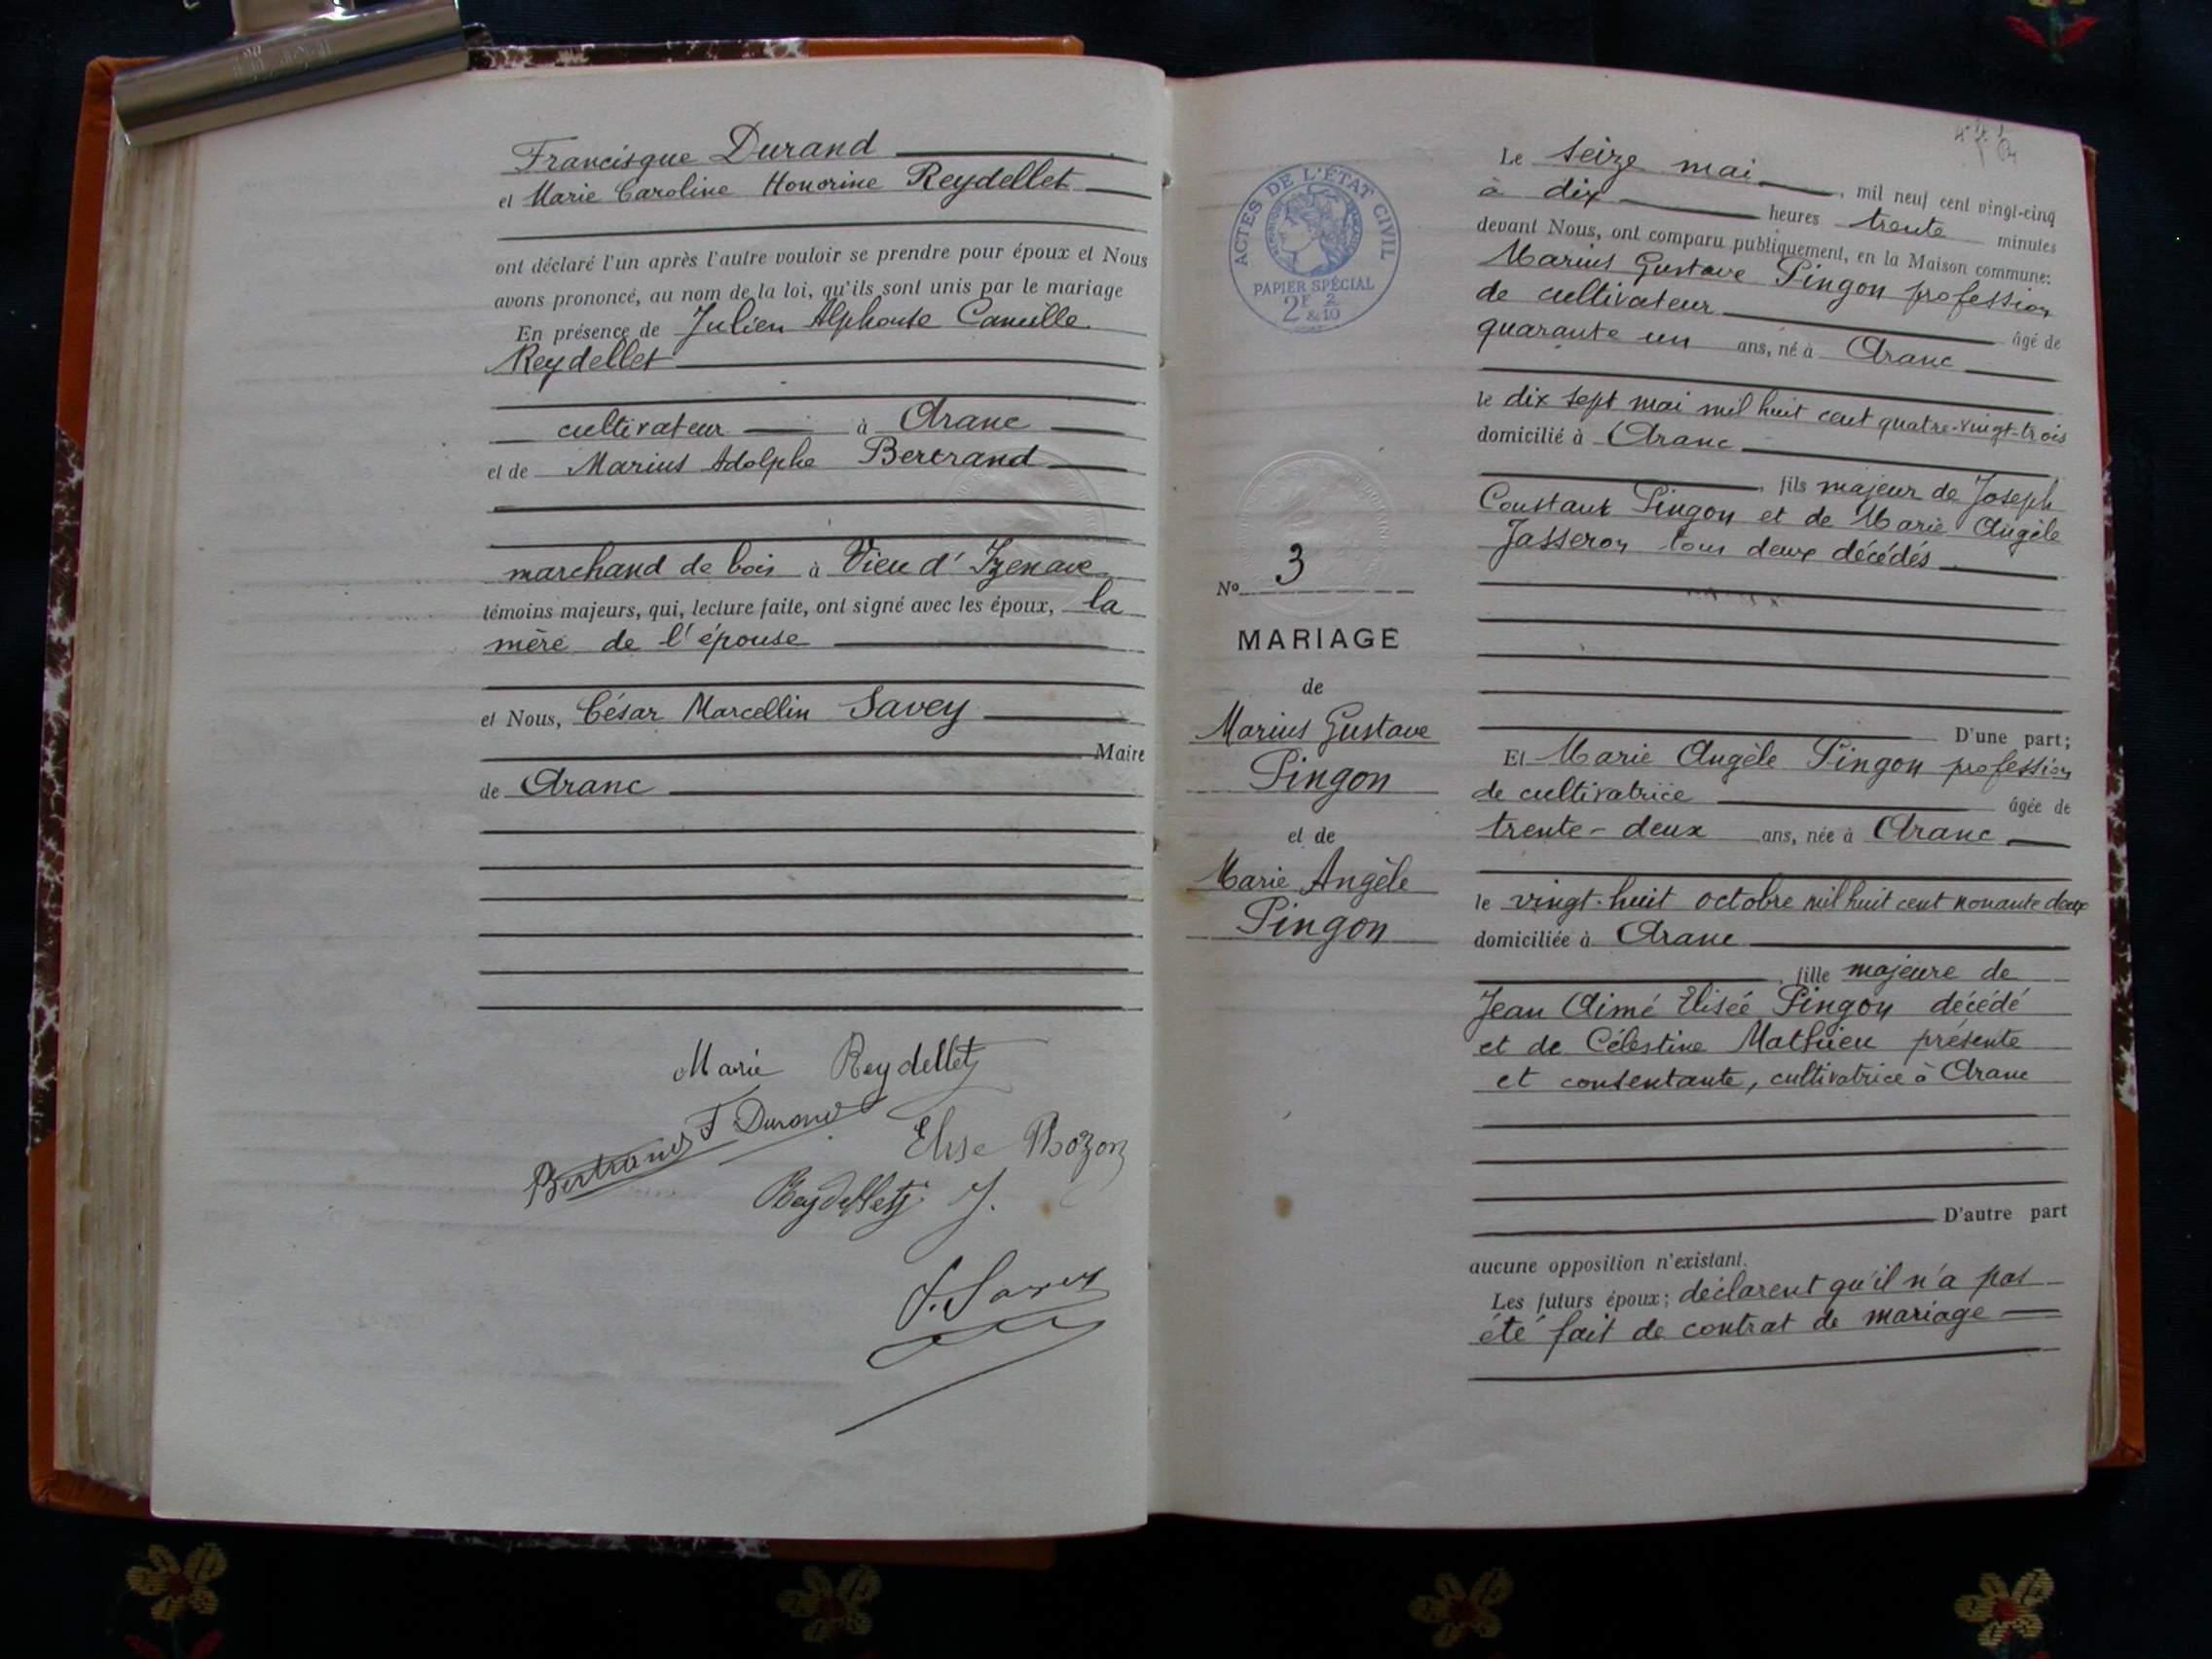 Francisque Durand
et Marie Caroline Honorine Reydellet
ont déclaré l'un après l'autre vouloir se prendre pour époux et Nous
avons prononcé, au nom de la loi, qu'ils sont unis par le mariage
En présence de Julien Alphonse Camille
Reydellet
cultivateur à Aranc
et de Marius Adolphe Bertrand
marchand de bois à Vieu d'Izenave
témoins majeurs, qui, lecture faite, ont signé avec les époux, la
mère de l'épouse
et Nous, César Marcellin Savey
Maire
de Aranc
Marie Reydellet
F Durand
Bertrand
Elise Bozon
Reydellet J.
Savey
ACTES DE L'ÉTAT CIVIL
PAPIER SPÉCIAL
2F 2
&10
No 3
MARIAGE
de
Marius Gustave
Pingon
et de
Marie Angèle
Pingon
Le seize mai, mil neuf cent vingt-cinq
à dix heures trente minutes
devant Nous, ont comparu publiquement, en la Maison commune:
Marius Gustave Pingon profession
de cultivateur âgé de
quarante un ans, né à Aranc
le dix sept mai mil huit cent quatre-vingt-trois
domicilié à Aranc
, fils majeur de Joseph
Constant Pingon et de Marie Angèle
Jasseron tous deux décédés
D'une part;
Et Marie Angèle Pingon profession
de cultivatrice âgée de
trente-deux ans, née à Aranc
le vingt-huit octobre mil huit cent nonante deux
domiciliée à Aranc
, fille majeure de
Jean Aimé Elisée Pingon décédé
et de Célestine Mathieu présente
et consentante, cultivatrice à Aranc
D'autre part
aucune opposition n'existant.
Les futurs époux; déclarent qu'il n'a pas
été fait de contrat de mariage